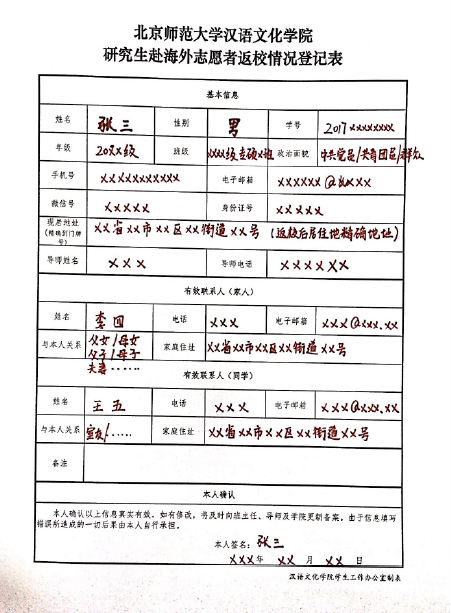 北京师范大学汉语文化学院
研究生赴海外志愿者返校情况登记表
基本信息
姓名 张三 性别 男 学号 2017xxxxxxxx
年级 20XX级 班级 xxxx级专硕x班 政治面貌 中共党员/共青团员/群众
手机号 xxxxxxxxxxx 电子邮箱 xxxxxx@xxxx
微信号 xxxxx 身份证号 xxxxx
现居地址(精确到门牌号) xx省xx市xx区xx街道xx号(返校后居住地精确地址)
导师姓名 xxx 导师电话 xxxxxx
有效联系人(家人)
姓名 李四 电话 xxx 电子邮箱 xxx@xxx.xx
与本人关系 父女/母女 家庭住址 xx省xx市xx区xx街道xx号
父子/母子
夫妻……
有效联系人(同学)
姓名 王五 电话 xxx 电子邮箱 xxx@xxx.xx
与本人关系 室友/…… 家庭住址 xx省xx市xx区xx街道xx号
备注
本人确认
本人确认以上信息真实有效。如有修改,将及时向班主任、导师及学院更新备案。由于信息填写
错误所造成的一切后果由本人自行承担。
本人签名:张三
xxx年 xx 月 xx 日
汉语文化学院学生工作办公室制表